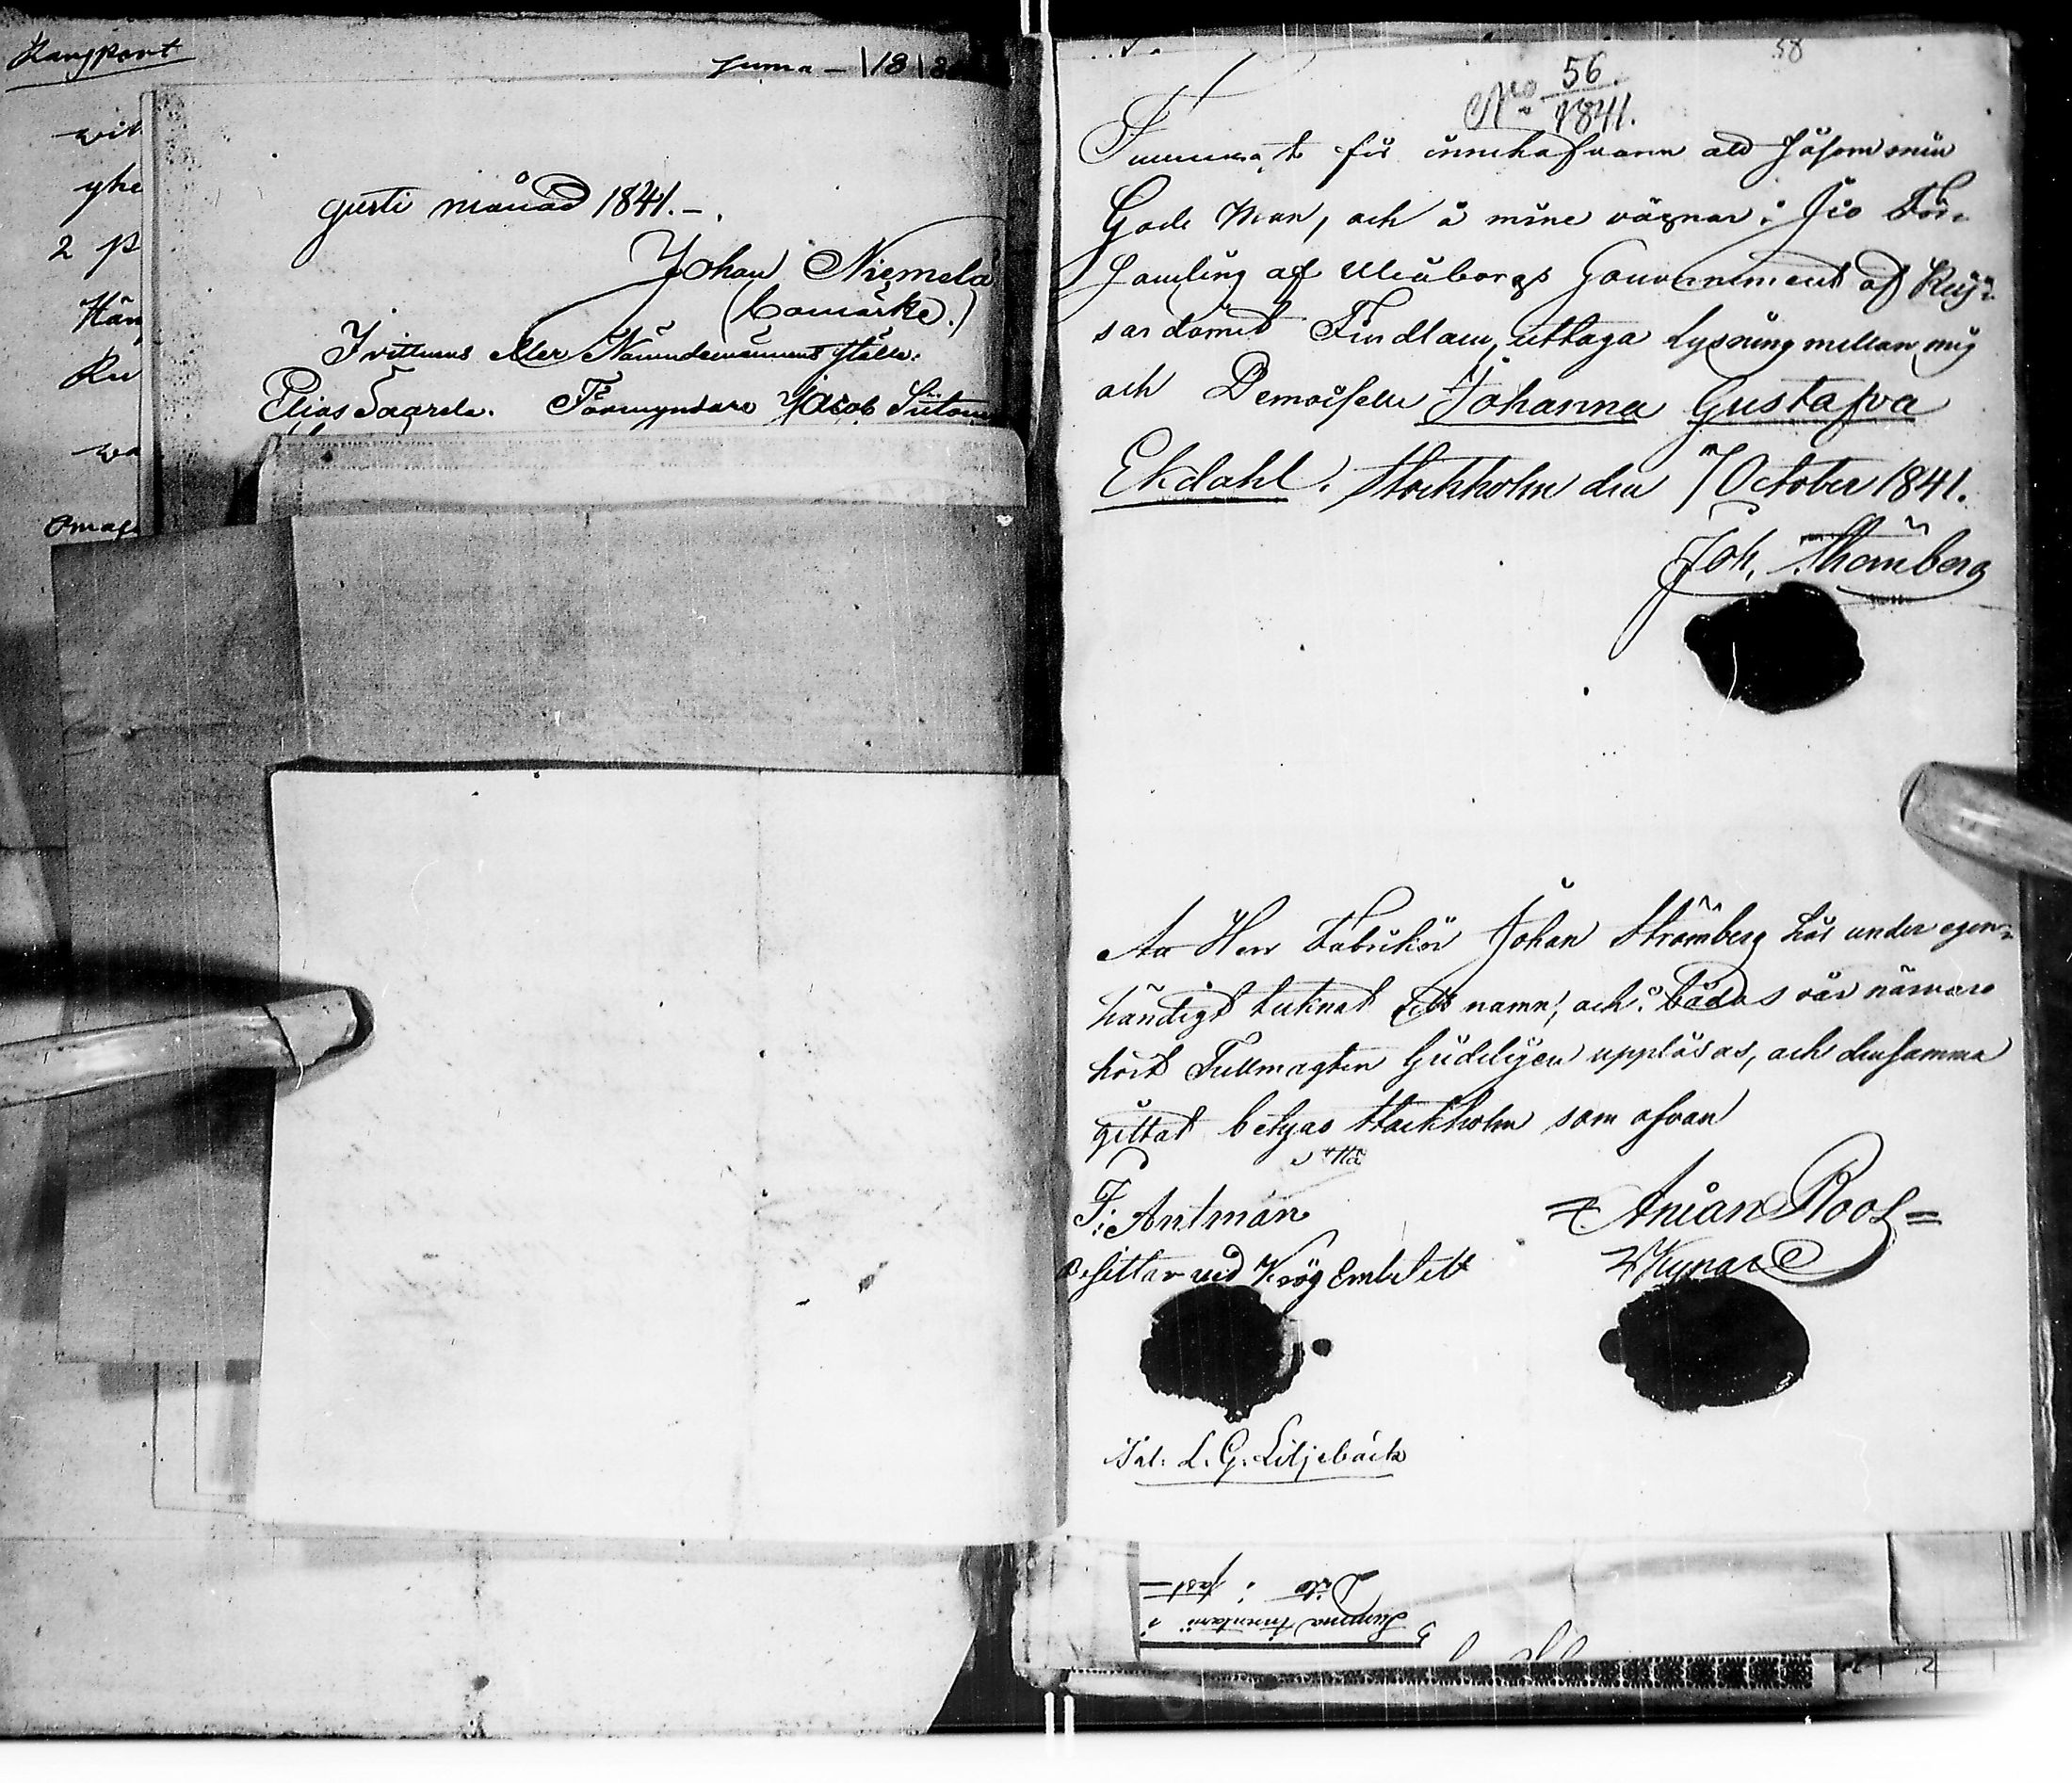 Rangport
Suma — 18
wit
yhe
2 p
Hän
Ru
wa
Omag
gusti månad 1841.—.
Johan Niemelä
(bomärke.)
I vittnens eller Nämndemännens ställe.
Elias Saarela. Förmyndare Jacob
58
No 56/1841.
för innehafvaren att såsom min
Gode Man, och å mine vägnar i Iio För-
samling af Uleåborgs Gouvernement af Kej-
sardömet Findlan, uttaga Lysning mellan mig
och Demoiselle Johanna Gustafva
Ekdahl. Stockholm den 7 October 1841.
Joh. Strömberg
At Herr Fabrikör Johan Strömberg har under egen-
händigt tecknat sitt namn, och i bådas vår närvaro
hört Fullmagten tydeligen uppläsas, och densamma
gillat betygas Stockholm som ofvan
F: Antman
Besittar ved Krög Embetett
Anian Roos
Tal. L. G. Liljebäck
Summa Inventarii i
Dito i fast